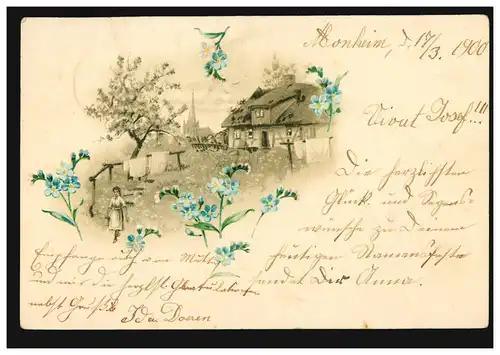 Monheim, d. 17/3. 1900
Vivat Josef!!!
Die herzlichsten
Glück- und Segens-
wünsche zu Deinem
heutigen Namensfeste
sendet Dir Anna.
Empfange auch von
und mir die herzlichst. Gratulationen
nebst Gruß
Doeren